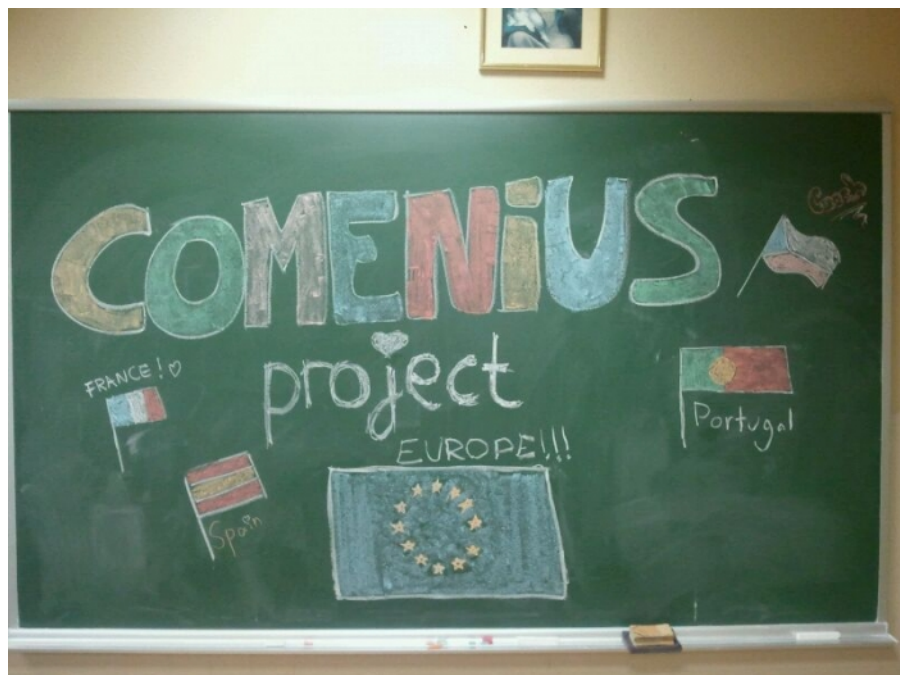 COMENiUS
project
FRANCE!♡
Portugal
EUROPE!!!
Spain